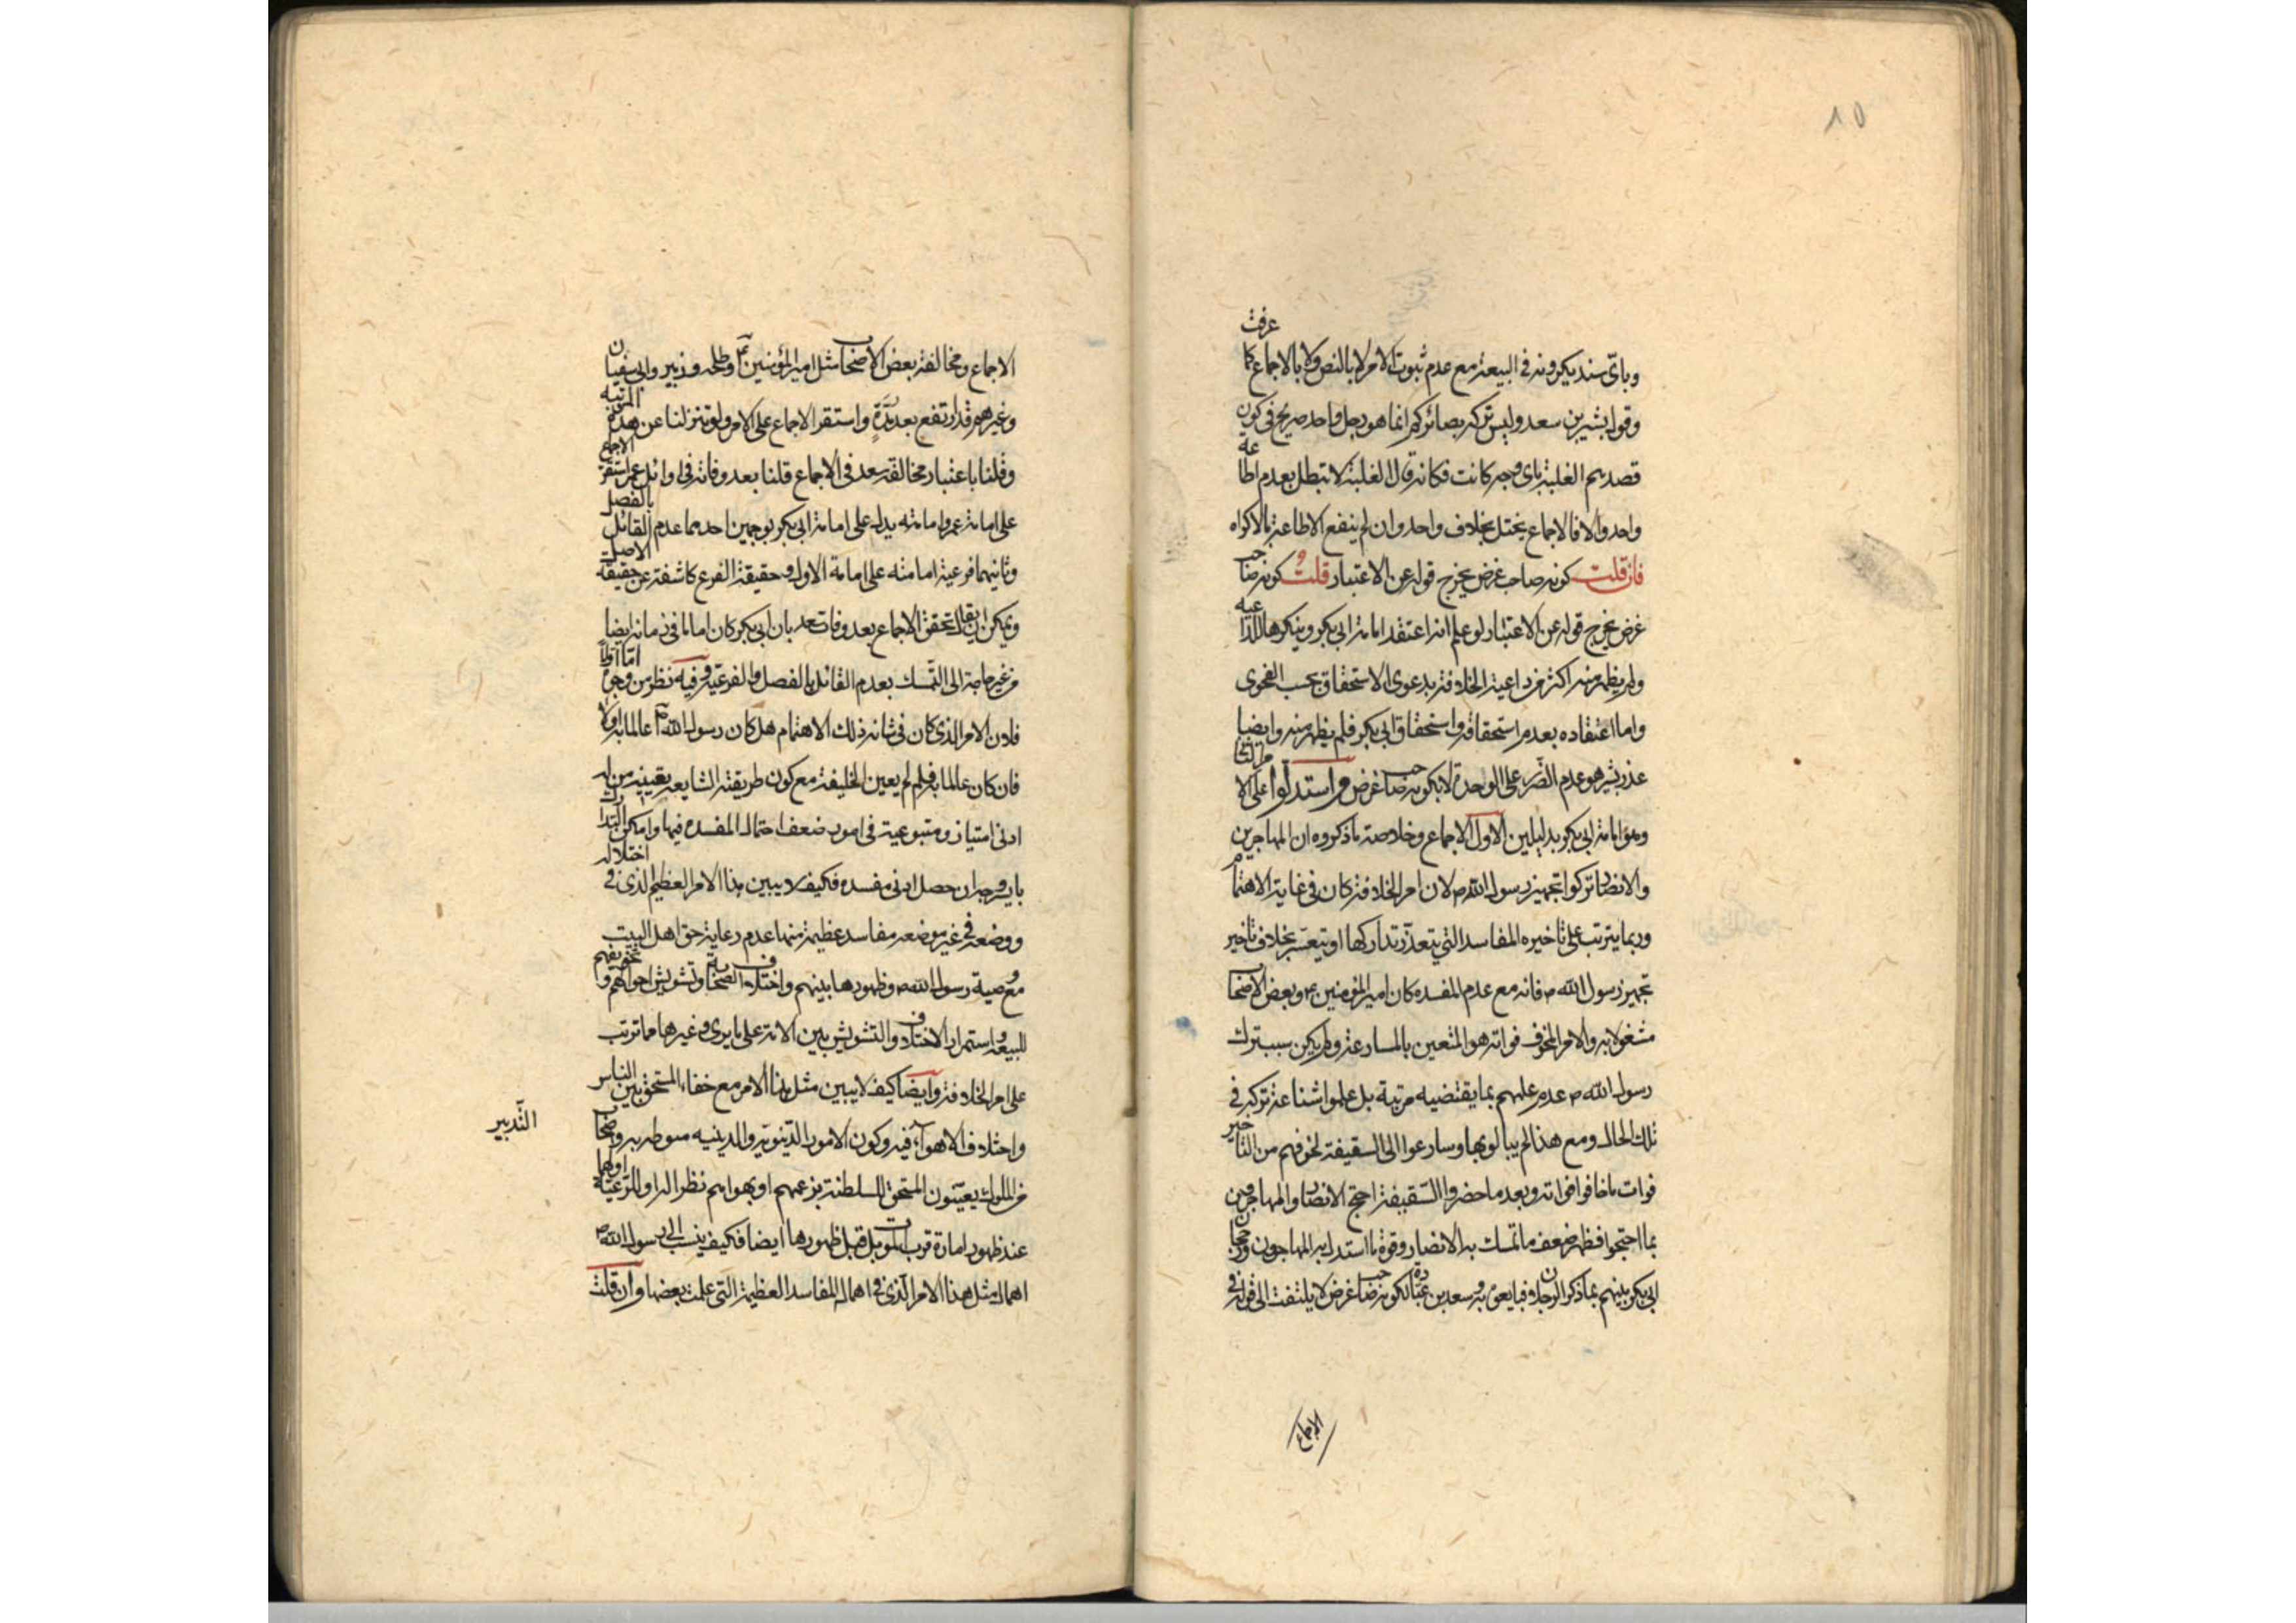 ١٥
وبأي سند يكرونه في البيعة مع عدم ثبوت الامر لا بالنص ولا بالاجماع كما عرفت
وقول بشير بن سعد وليس تركه بضائركم انما هو رجل واحد صريح في كون
قصدهم الغلبة باي وجه كانت فكانه قال الغلبة لا تبطل بعدم اطاعة
واحد والا فالاجماع يختل بخلاف واحد وان لم ينفع الاطاعة بالاكراه
فان قلت كونه صاحب غرض يخرج قوله عن الاعتبار قلت كونه صاحب
غرض يخرج قوله عن الاعتبار لو علم انه اعتقد امامة ابي بكر وينكرها
ولم يظهر منه اكثر من داعية الخلافة بدعوى الاستحقاق بحسب الفحوى
واما اعتقاده بعدم استحقاقه واستحقاق ابي بكر فلم يظهر منه وايضا
عذر بشير هو عدم الضرر على الوحدة لا بكونه صاحب غرض واستدلوا على
امامة ابي بكر بدليلين الاول الاجماع وخلاصة ما ذكروه ان المهاجرين
والانصار تركوا تجهيز رسول الله ص لان امر الخلافة كان في غاية الاهتمام
وربما يترتب على تاخيره المفاسد التي يتعذر تداركها او يتعسر بخلاف تاخير
تجهيز رسول الله ص فانه مع عدم المفسدة كان امير المؤمنين ع وبعض الاصحاب
مشغولا به والامر المخوف فواته هو المتعين بالمسارعة ولم يكن سبب ترك
رسول الله ص عدم علمهم بما يقتضيه مرتبة بل علموا شناعة تركه في
تلك الحال ومع هذا لم يبالوا بها وسارعوا الى السقيفة لخوفهم من التاخير
فوات ما خافوا فواته وبعد ما حضروا السقيفة احتج الانصار والمهاجرين
بما احتجوا فظهر ضعف ما تمسك به الانصار وقوة ما استدل به المهاجرون
ابي بكر بينهم بما ذكر الرجلان فبايعوه و سعد بن عبادة لكونه صاحب غرض لا يلتفت الى قوله في
الاجماع
الاجماع ومخالفة بعض الاصحاب مثل امير المؤمنين ع وطلحه وزبير وابي سفيان
وغيرهم قد ارتفع بعد مدة واستقر الاجماع على الامر ولو تنزلنا عن هذه المرتبه
وقلنا باعتبار مخالفة سعد في الاجماع قلنا بعد وفاته في اوائل عمر استقر الاجماع
على امامة عمر وامامته يدل على امامة ابي بكر بوجهين احدهما عدم القائل بالفصل
وثانيهما فرعية امامته على امامة الاول وحقيقة الفرع كاشفة عن حقيقة الاصل
ويمكن ان يقال تحقق الاجماع بعد وفات سعد بان ابي بكر كان اماما في زمانه ايضا
من غير حاجة الى التمسك بعدم القائل بالفصل والفرعية وفيه نظر من وجوه اما اولا
فلان الامر الذي كان في شانه ذلك الاهتمام هل كان رسول الله ص عالما به او لا
فان كان عالما به فلم لم يعين الخليفة مع كون طريقته الشايعه تعيينه من له
ادنى امتياز ومتبوعية في امور ضعف احتمال المفسده فيها وامكن التدارك
باي وجه ان حصل ادنى مفسده فكيف لا يبين هذا الامر العظيم الذي في اختلاله
ووضعه في غير موضعه مفاسد عظيمة منها عدم رعاية حق اهل البيت
مع وصية رسول الله ص وظهورها بينهم واختلاف الصحابة وتشويش احوالهم و تخويفهم
للبيعه واستمرار الاختلاف والتشويش بين الامة على ما يرى وغيرها مما ترتب
على امر الخلافة وايضا كيف لا يبين مثل هذا الامر مع خفاء المستحق بين الناس
واختلاف الاهواء فيه وكون الامور الدنيوية والدينيه منوطة به واصحاب
التدبير
من الملوك يعينون المستحق للسلطنة بزعمهم او بهواهم نظرا له او للرعية
عند ظهور امارة قرب الموت بل قبل ظهورها ايضا فكيف ينسب الى رسول الله ص
اهمال مثل هذا الامر الذي في اهماله المفاسد العظيمة التي علمت بعضها وان قلت